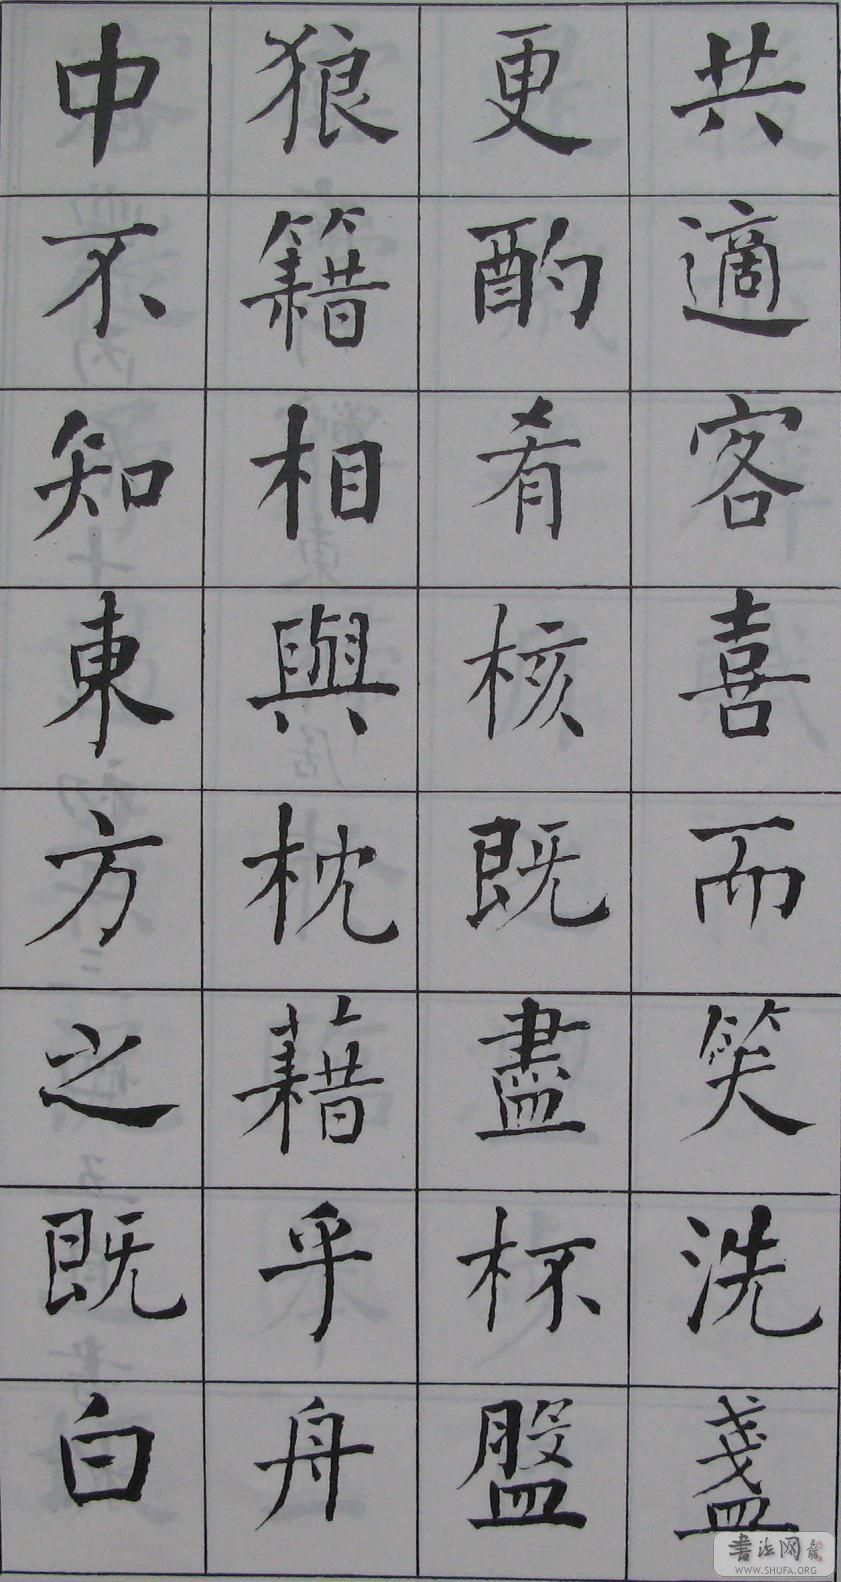 共適客喜而笑洗盞
更酌肴核既盡杯盤
狼籍相與枕藉乎舟
中不知東方之既白
書法网
WWW.SHUFA.ORG